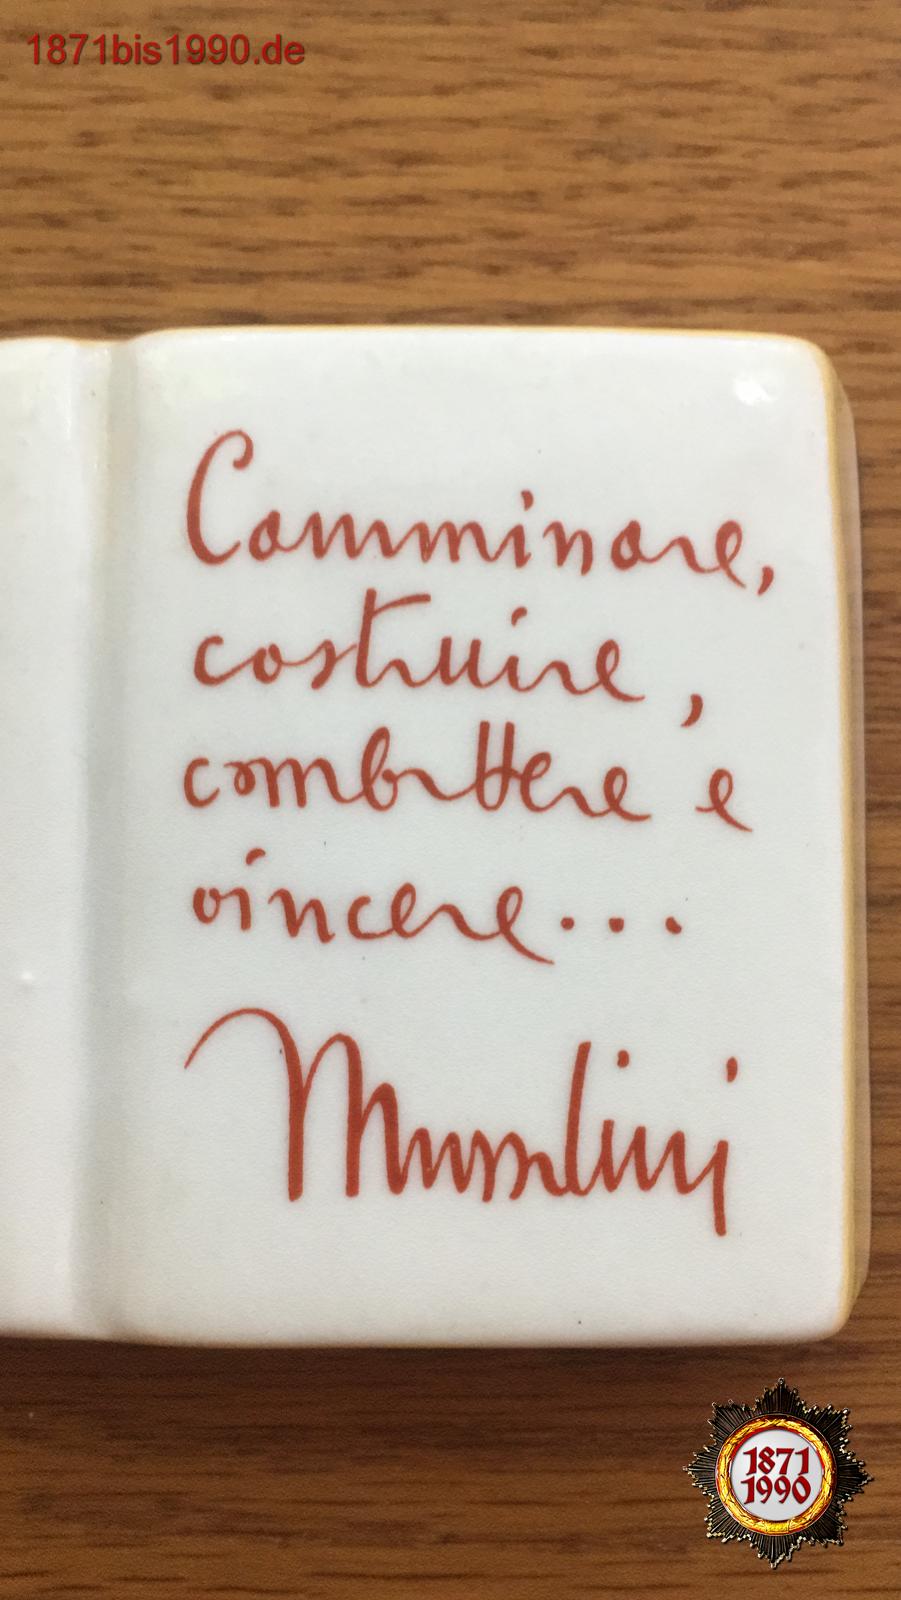 1871bis1990.de
Camminare,
costruire,
combattere e
vincere...
Mussolini
1871
1990